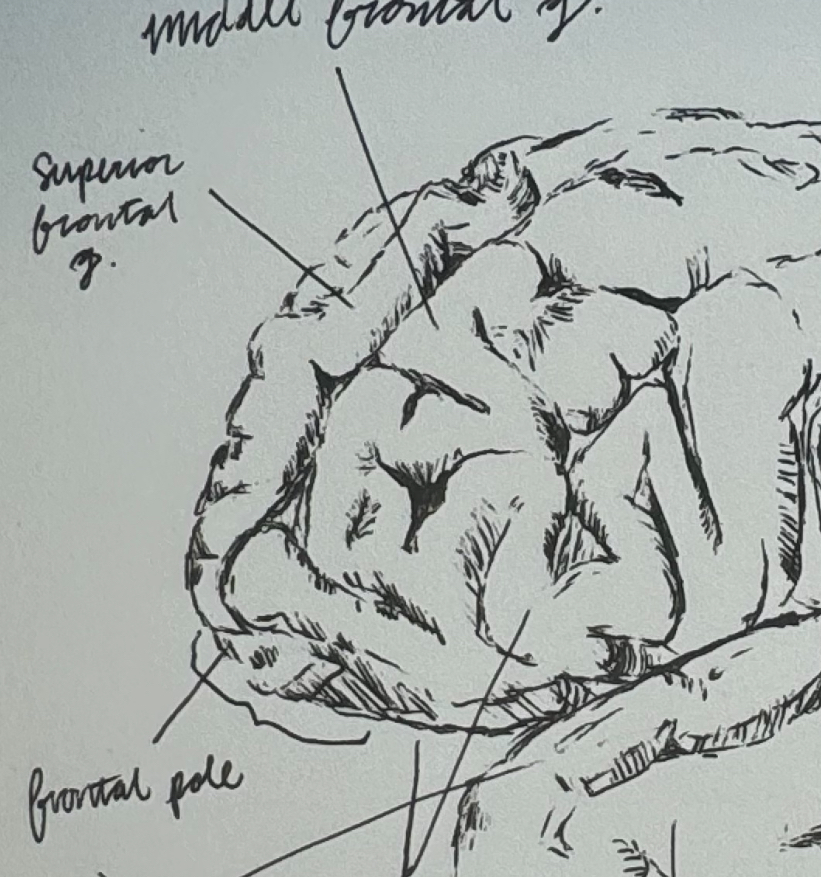 middle frontal g.
superior
frontal
g.
frontal pole